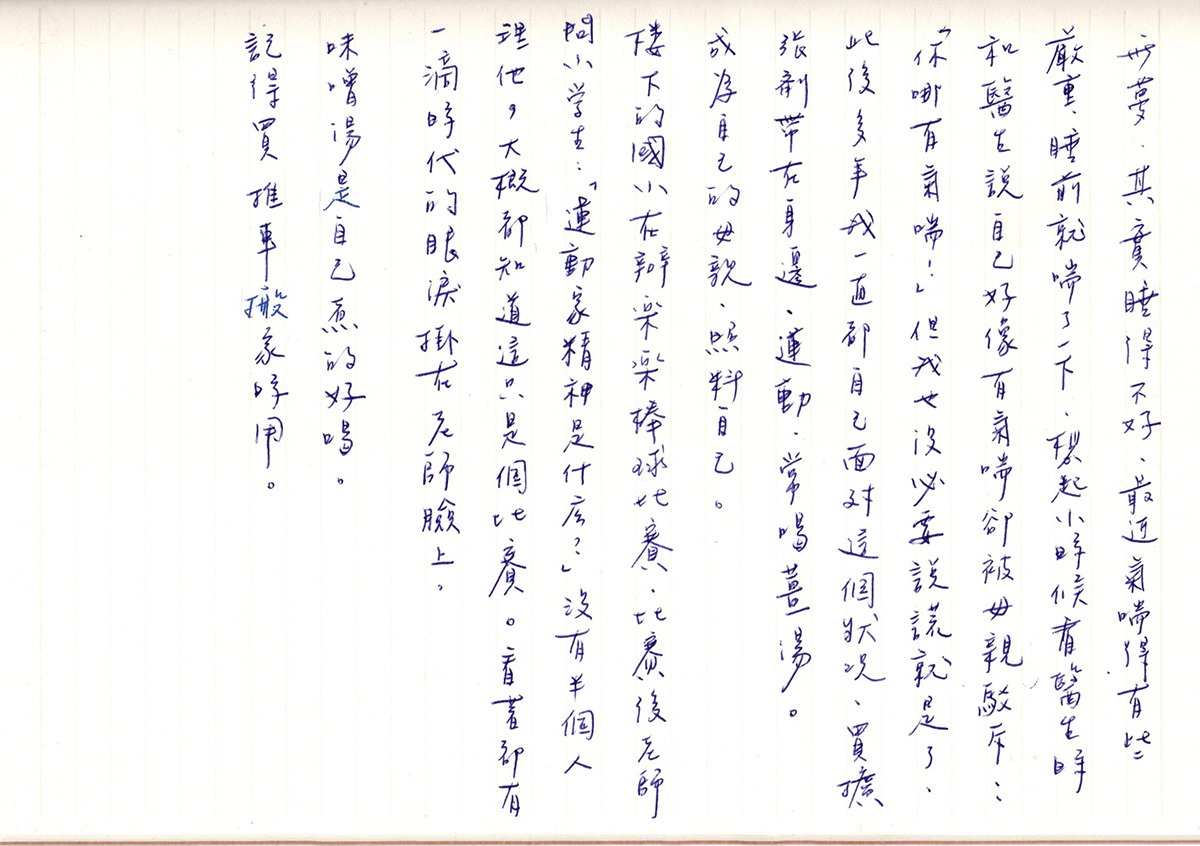 無夢、其實睡得不好、最近氣喘得有些
嚴重、睡前就喘了一下、想起小時候看醫生時
和醫生說自己好像有氣喘卻被母親駁斥：
「你哪有氣喘！」但我也沒必要說謊就是了、
此後多年我一直都自己面對這個狀況、買擴
張劑帶在身邊、運動、常喝薑湯。
成為自己的母親、照料自己。
樓下的國小在辦樂樂棒球比賽、比賽後老師
問小学生：「運動家精神是什么？」沒有半個人
理他，大概都知道這只是個比賽。看著都有
一滴時代的眼淚掛在老師臉上，
味噌湯是自己煮的好喝。
記得買 推車 搬家時用。